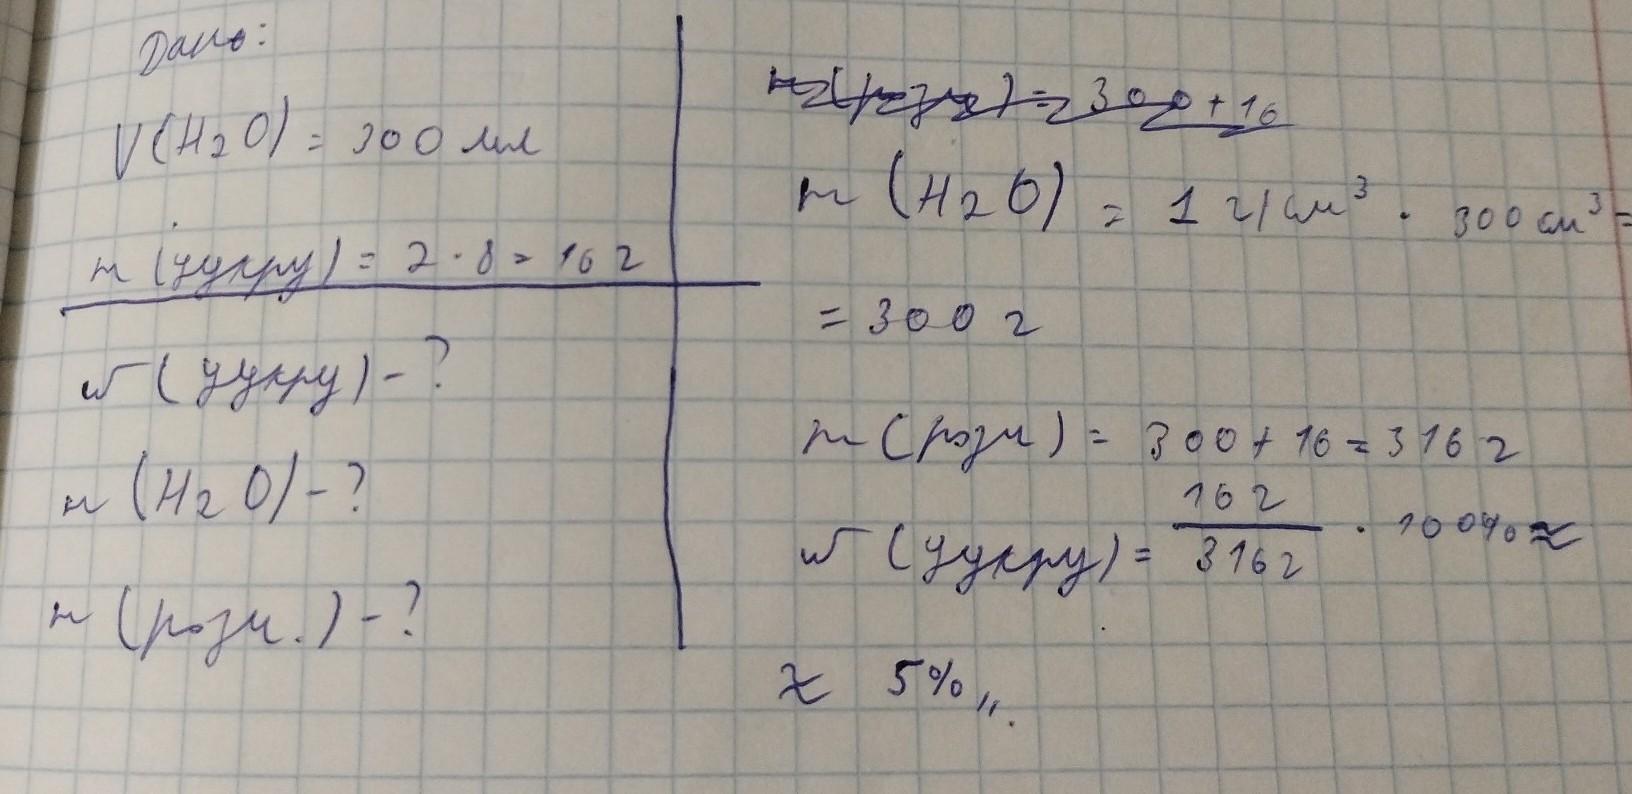 Дано:
V(H2O) = 300 мл
m (цукру) = 2 · 8 = 16 г
w (цукру) - ?
m (H2O) - ?
m (розч.) - ?
m (розч) = 300 + 16
m (H2O) = 1 г/см³ · 300 см³ =
= 300 г
m (розч) = 300 + 16 = 316 г
w (цукру) = 16 г / 316 г · 100% ≈
≈ 5%,,.